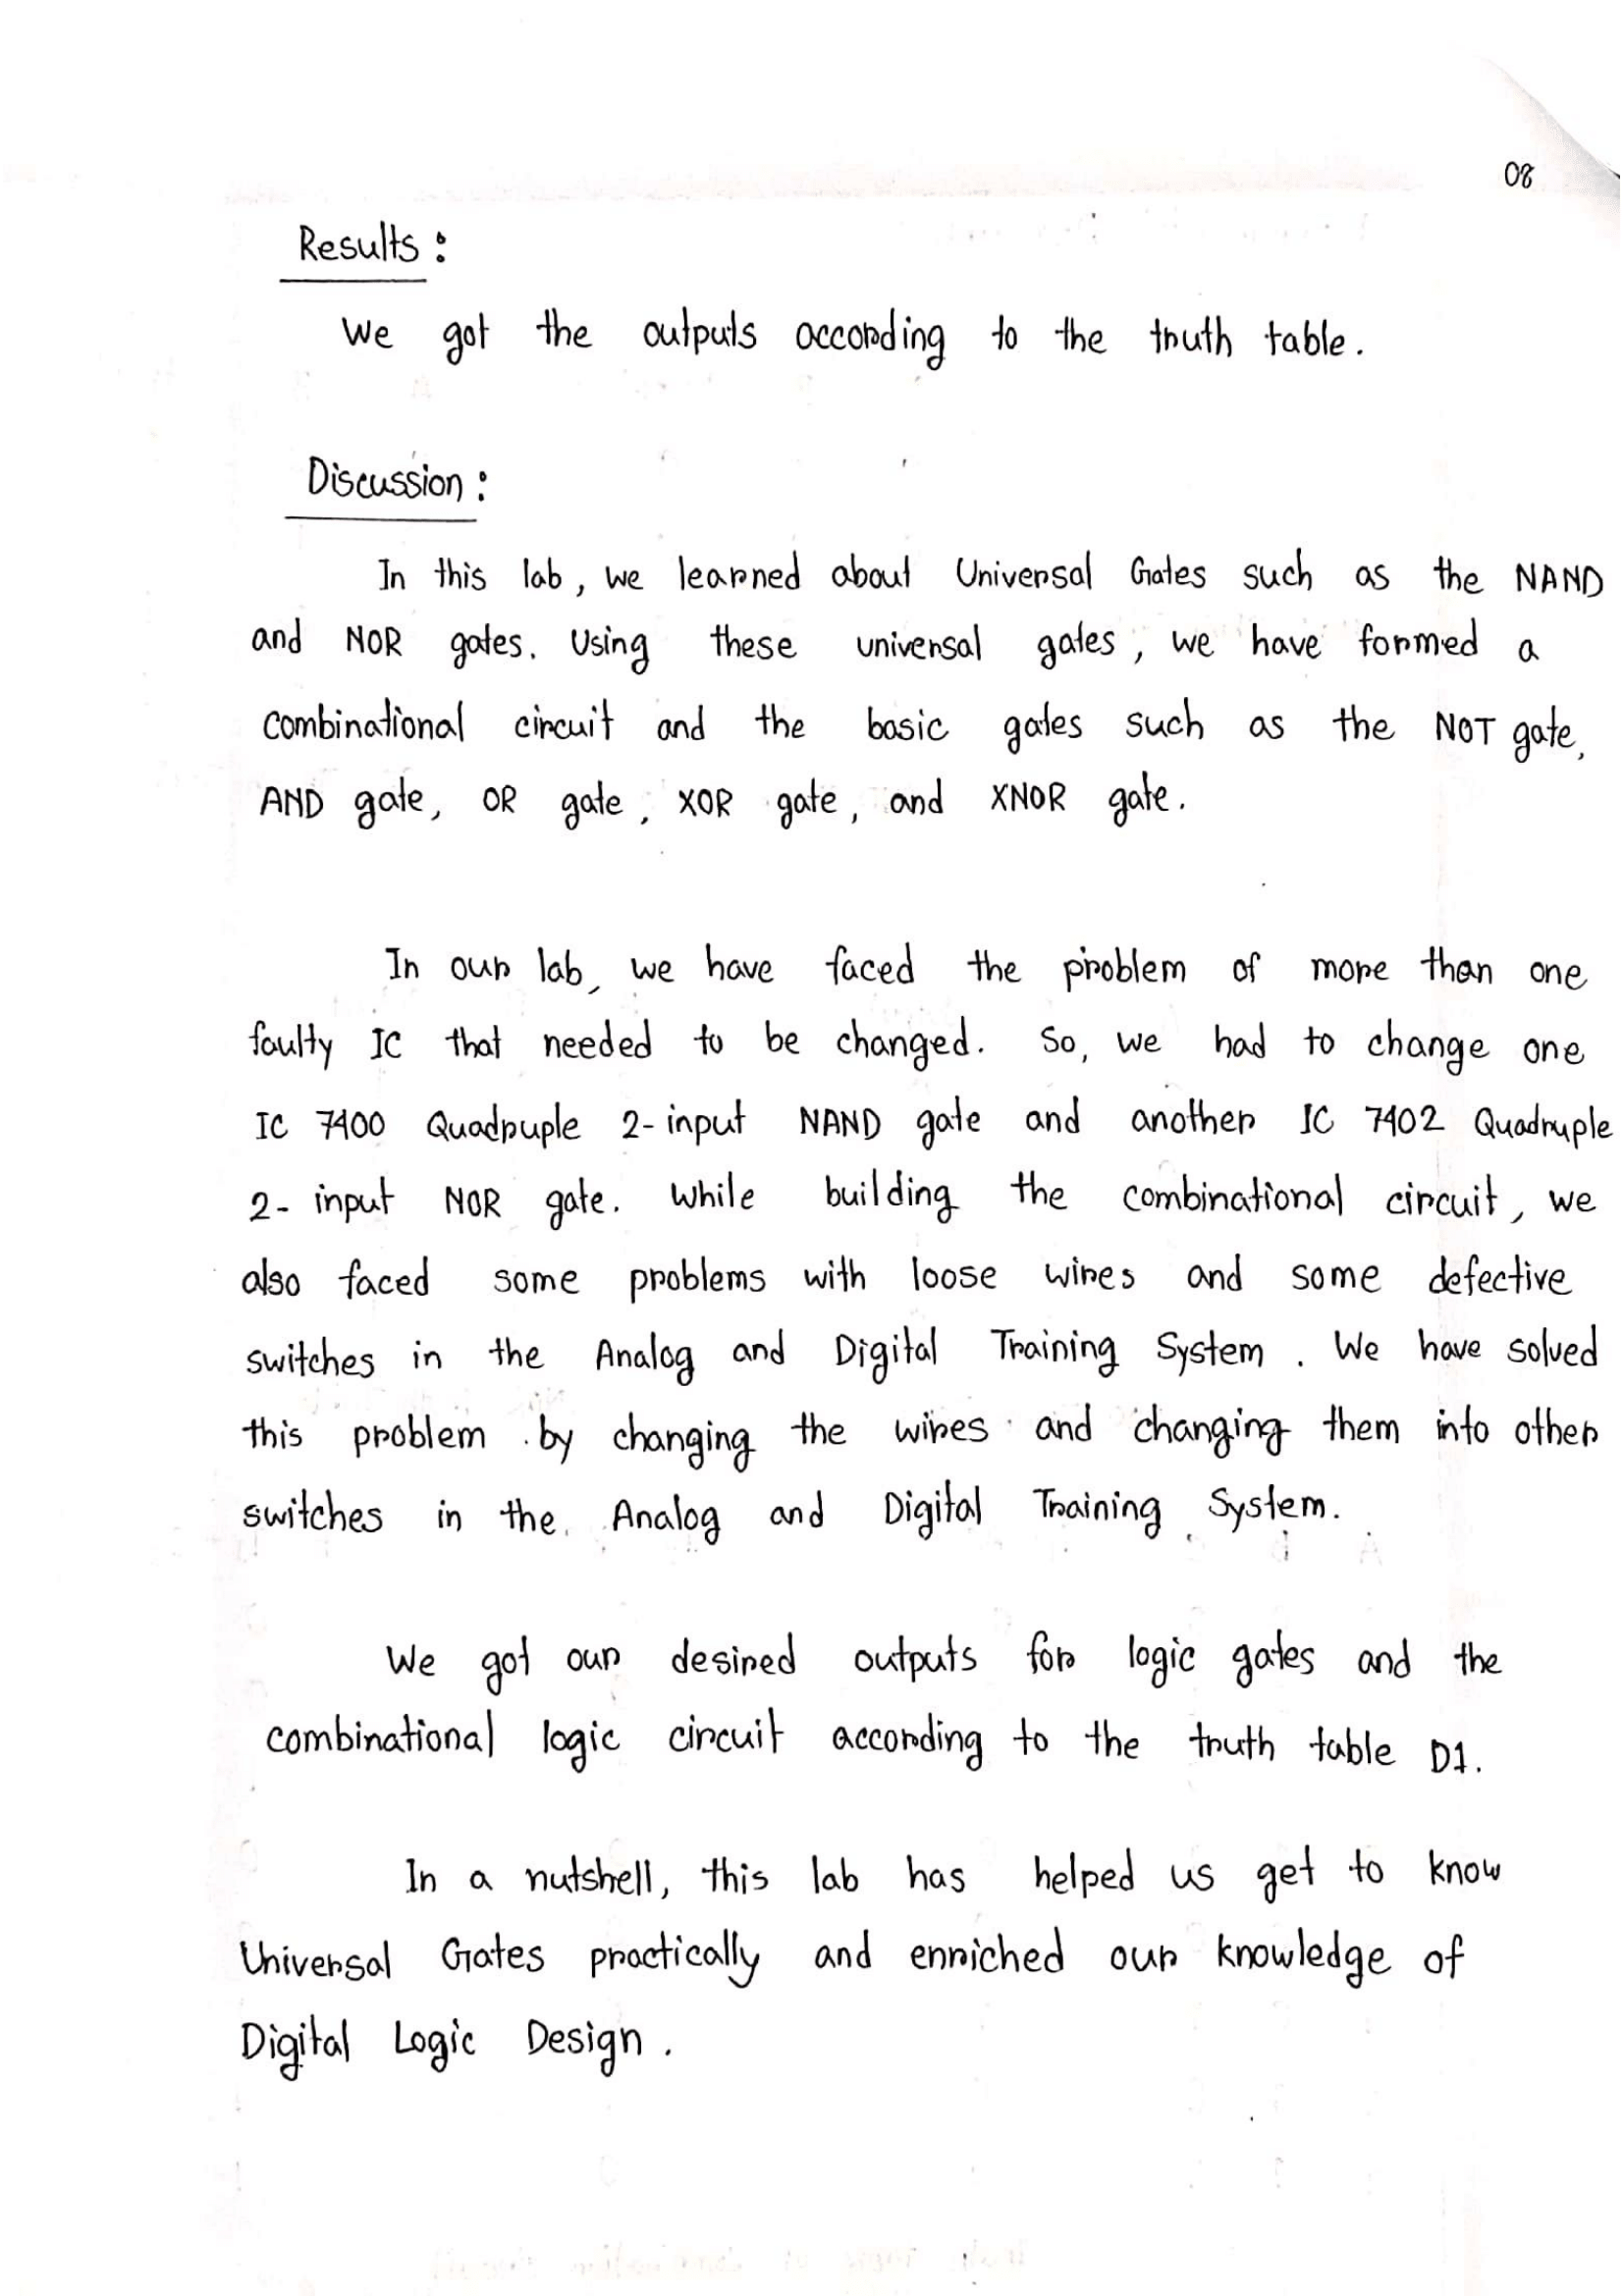 08
Results:
We got the outputs according to the truth table.
Discussion:
In this lab, we learned about Universal Gates such as the NAND
and NOR gates. Using these universal gates, we have formed a
combinational circuit and the basic gates such as the NOT gate,
AND gate, OR gate, XOR gate, and XNOR gate.
In our lab, we have faced the problem of more than one
faulty IC that needed to be changed. So, we had to change one
IC 7400 Quadruple 2-input NAND gate and another IC 7402 Quadruple
2-input NOR gate. While building the combinational circuit, we
also faced some problems with loose wires and some defective
switches in the Analog and Digital Training System. We have solved
this problem by changing the wires and changing them into other
switches in the Analog and Digital Training System.
We got our desired outputs for logic gates and the
combinational logic circuit according to the truth table D1.
In a nutshell, this lab has helped us get to know
Universal Gates practically and enriched our knowledge of
Digital Logic Design.